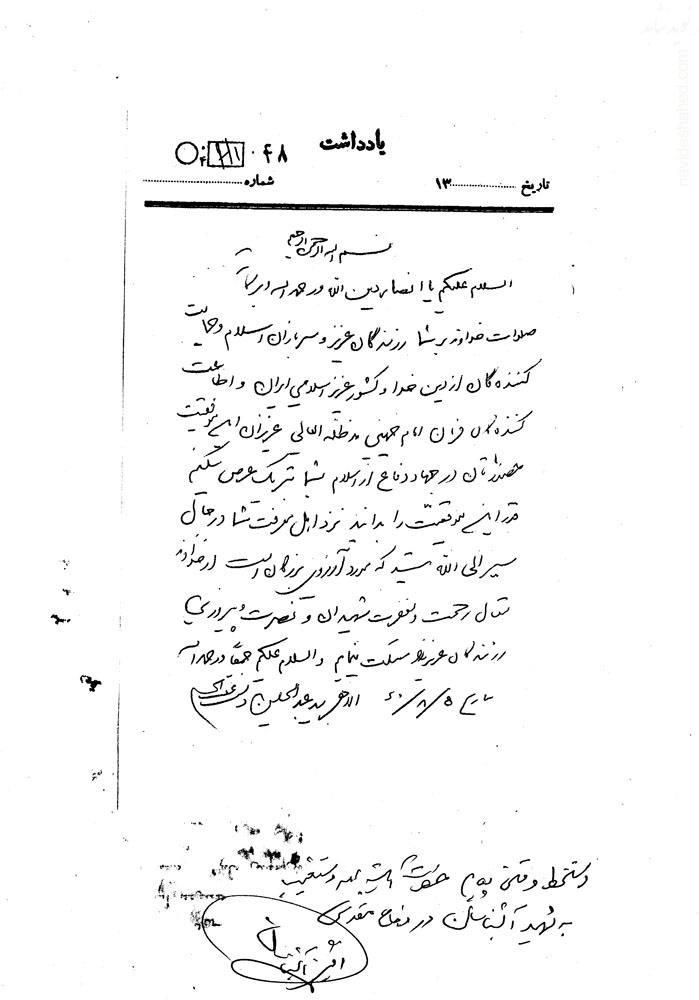 نوید شاهد
navideshahed.com
یادداشت
۰۴۸
تاریخ ............ ۱۳ شماره ............
بسم الله الرحمن الرحیم
السلام علیکم یا انصار دین الله و رحمة الله و برکاته
صلوات خداوند بر شما رزمندگان عزیز و سربازان اسلام و حمایت
کننده گان از دین خدا و کشور عزیز اسلامی ایران و اطاعت
کننده گان فرمان امام خمینی مدظله العالی عزیزان این موفقیت
حضورتان در جهاد و دفاع از اسلام بشما تبریک عرض میکنم
قدر این موقعیت را بدانید نزد اهل معرفت شما در حال
سیر الی الله هستید که مورد آرزوی بزرگان است از خداوند
متعال رحمت و مغفرت شهیدان و نصرت و پیروزی
رزمندگان عزیز مسئلت مینمایم والسلام علیکم جمیعا و رحمة الله
بتاریخ ۶۰/۸/۵ الاحقر سید عبدالحسین دستغیب
دستخط و متن پیام حضرت آیت الله دستغیب
به شهید آتشباسان در دفاع مقدس